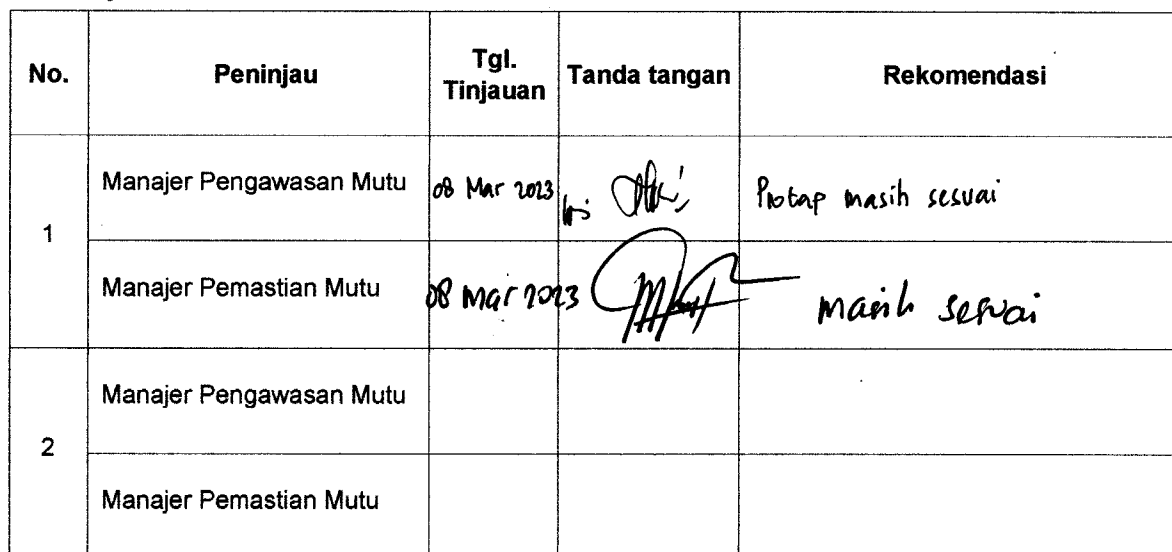 No. Peninjau Tgl. Tinjauan Tanda tangan Rekomendasi
1 Manajer Pengawasan Mutu 08 Mar 2023 Protap masih sesuai
Manajer Pemastian Mutu 08 Mar 2023 masih sesuai
2 Manajer Pengawasan Mutu
Manajer Pemastian Mutu